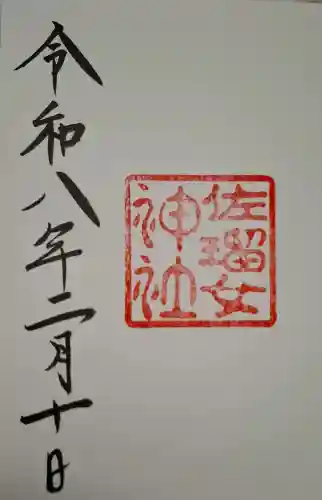 佐瑠女
神社
令和八年二月十日